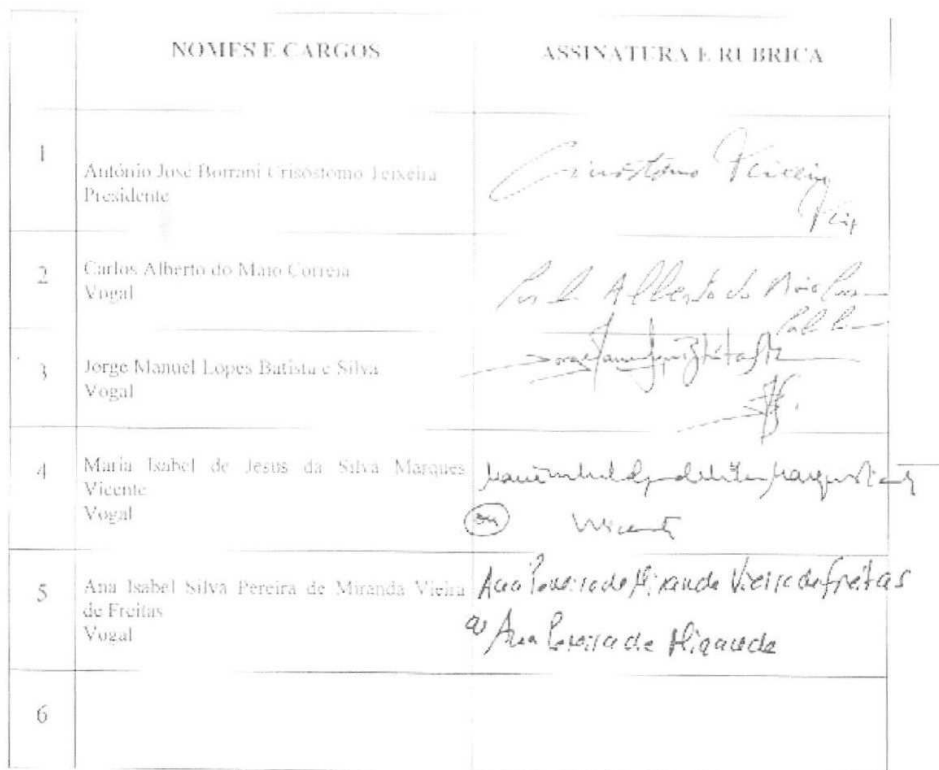 NOMES E CARGOS
ASSINATURA E RUBRICA
1
António José Borrani Crisóstomo Teixeira
Presidente
Crisóstomo Teixeira
2
Carlos Alberto do Maio Correia
Vogal
Alberto do Maio
3
Jorge Manuel Lopes Batista e Silva
Vogal
4
Maria Isabel de Jesus da Silva Marques
Vicente
Vogal
ou Vicente
5
Ana Isabel Silva Pereira de Miranda Vieira
de Freitas
Vogal
Ana Pereira de Miranda Vieira de Freitas
ou Ana Pereira de Miranda
6